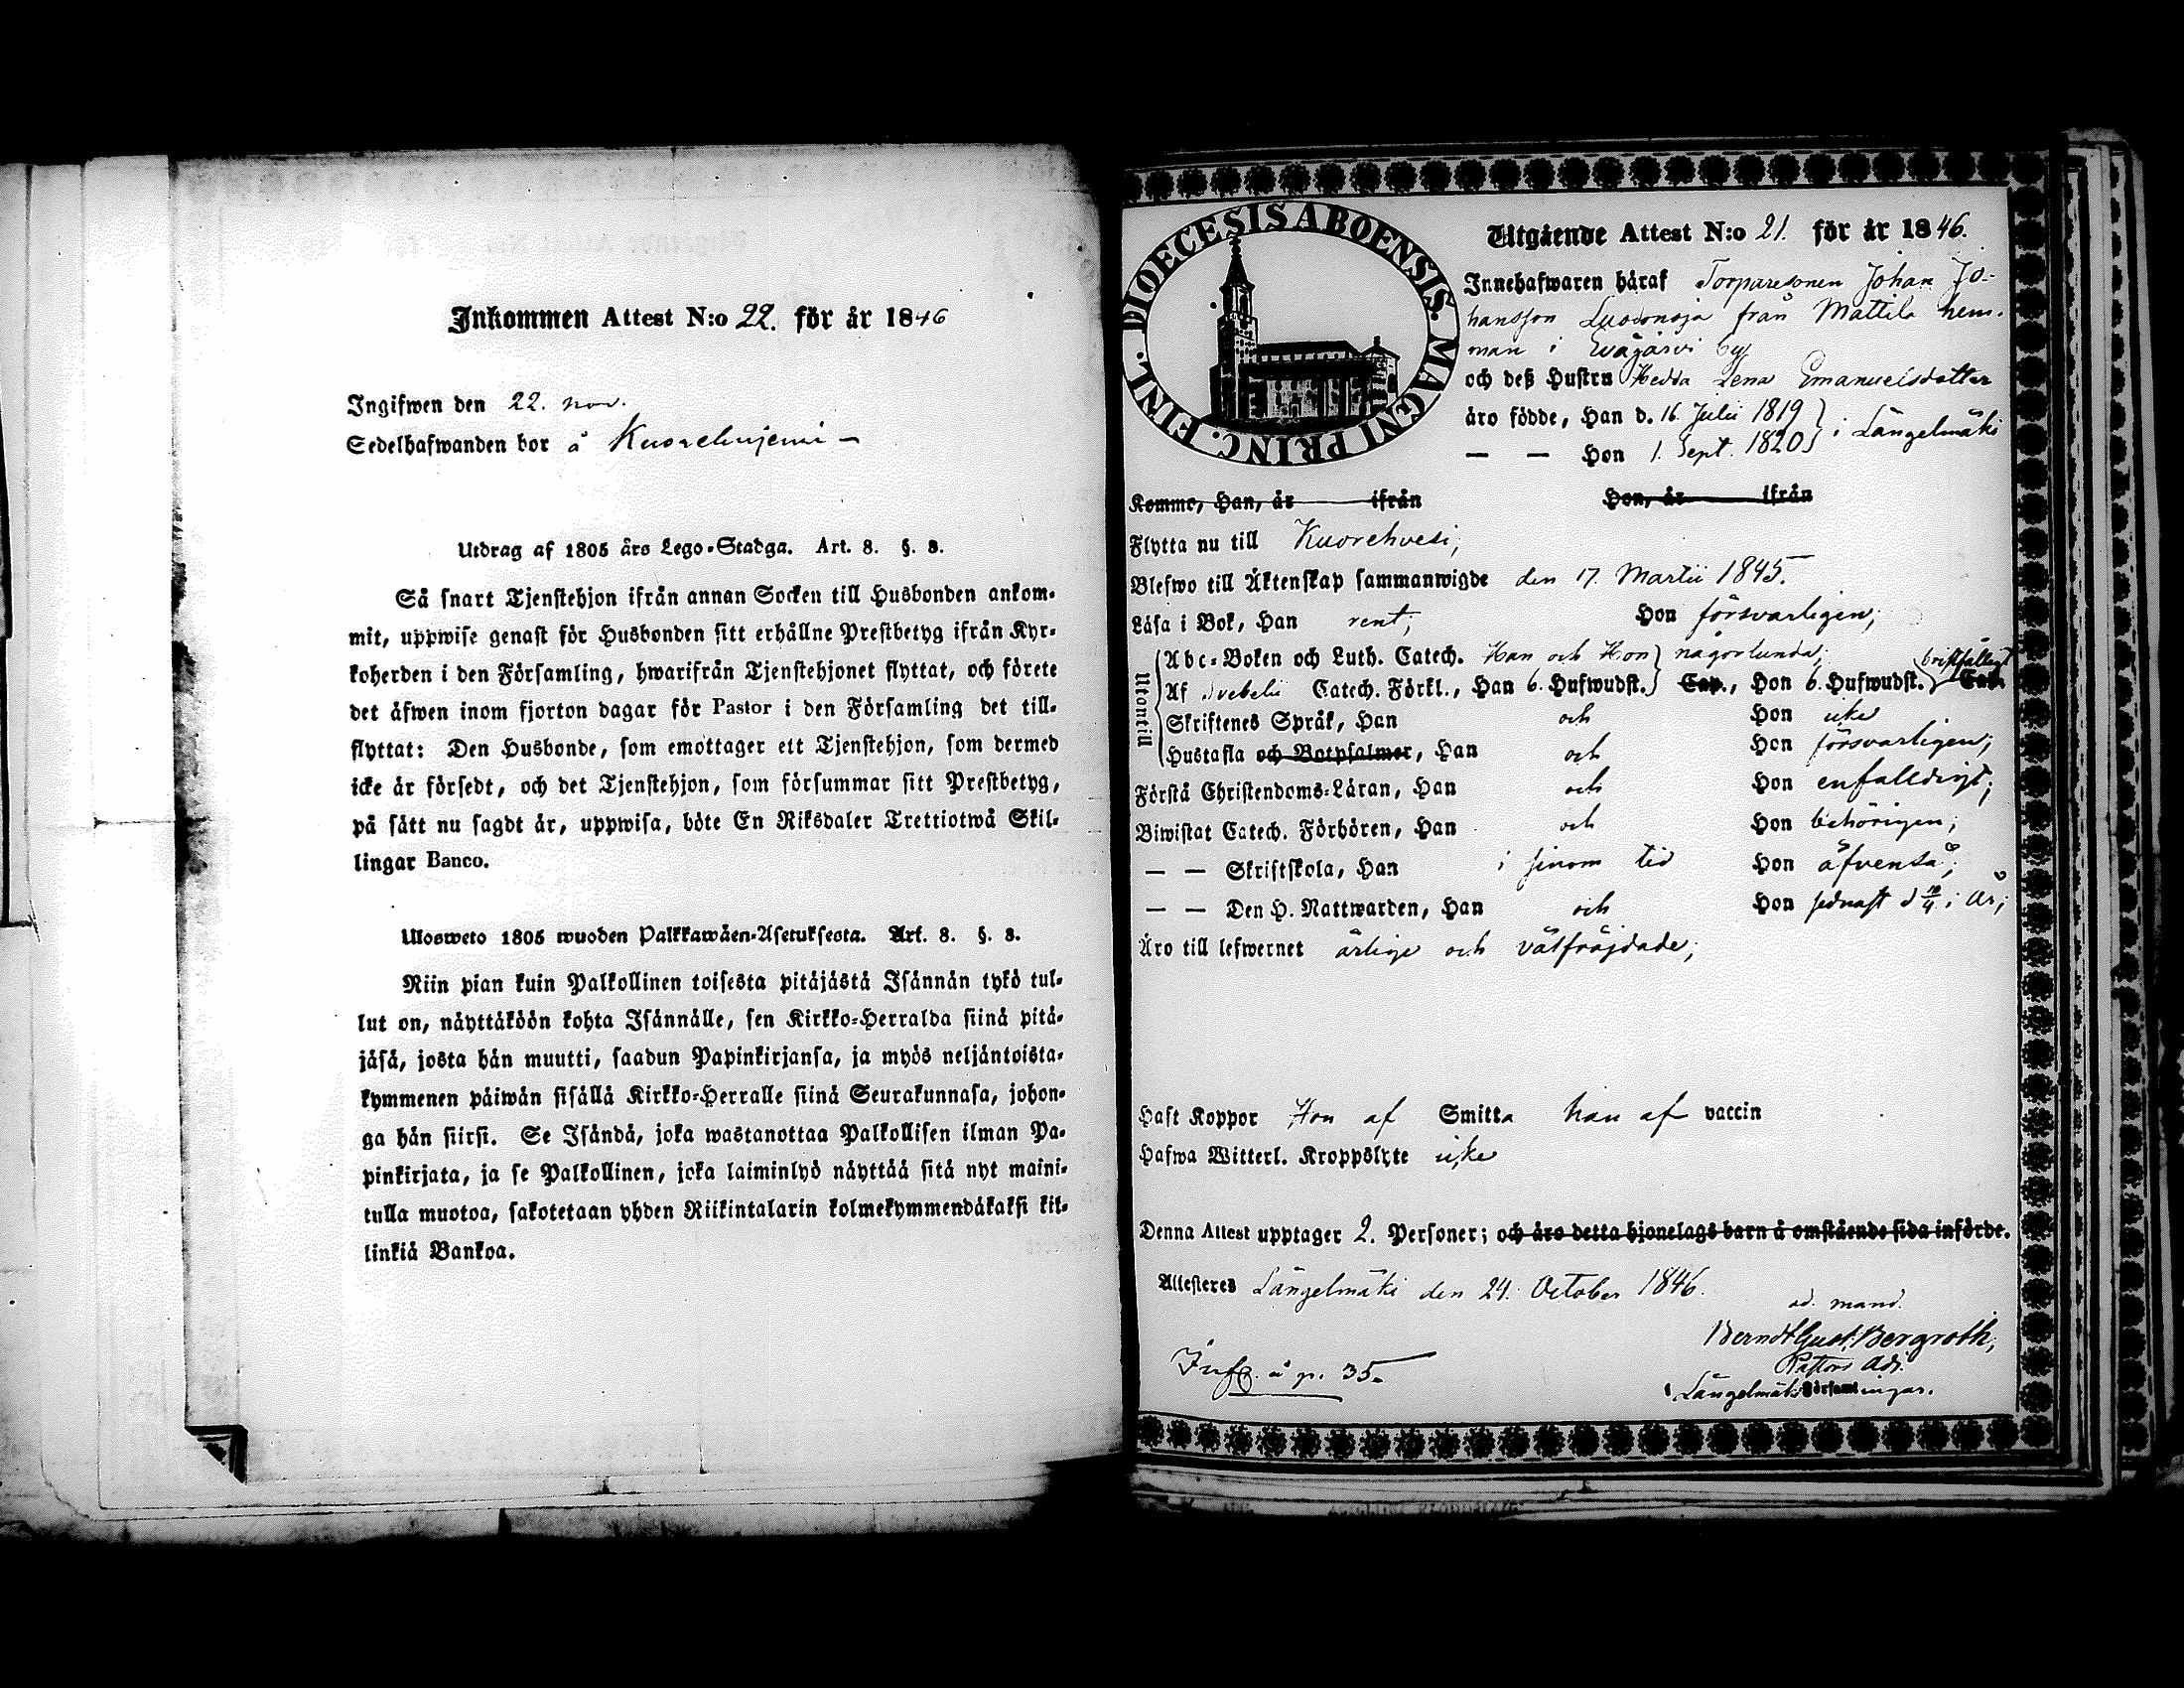 Inkommen Attest N:o 22. för år 1846
Ingifwen den 22. nov.
Sedelhafwanden bor å
Utdrag af 1805 års Lego-Stadga. Art. 8. §. 8.
Så snart Tjenstehjon ifrån annan Socken till Husbonden ankom-
mit, uppwise genast för Husbonden sitt erhållne Prestbetyg ifrån Kyr-
koherden i den Församling, hwarifrån Tjenstehjonet flyttat, och förete
det äfwen inom fjorton dagar för Pastor i den Församling det till-
flyttat: Den Husbonde, som emottager ett Tjenstehjon, som dermed
icke är försedt, och det Tjenstehjon, som försummar sitt Prestbetyg,
på sätt nu sagdt är, uppwisa, böte En Riksdaler Trettiotwå Skil-
lingar Banco.
Ulosweto 1805 wuoden Palkkawäen-Asetuksesta. Art. 8. §. 8.
Niin pian kuin Palkollinen toisesta pitäjästä Isännän tykö tul-
lut on, näyttäköön kohta Isännälle, sen Kirkko-Herralda siinä pitä-
jäsä, josta hän muutti, saadun Papinkirjansa, ja myös neljäntoista-
kymmenen päiwän sisällä Kirkko-Herralle siinä Seurakunnasa, johon-
ga hän siirsi. Se Isändä, joka wastanottaa Palkollisen ilman Pa-
pinkirjata, ja se Palkollinen, joka laiminlyö näyttää sitä nyt maini-
tulla muotoa, sakotetaan yhden Riikintalarin kolmekymmendäkaksi kil-
linkiä Bankoa.
DIOECESIS ABOENSIS. MAGNI PRINC. FINL.
Utgående Attest N:o 21. för år 1846.
Innehafwaren häraf Torparesonen Johan Jo-
hansson från Mattila hem-
man i Eväjärvi by
och deß Hustru Hedda Lena Emanuelsdotter
äro födde, Han d. 16. Julii 1819 } i Längelmäki
— — Hon 1. Sept. 1820
Komme, Han, år ifrån Hon, år ifrån
Flytta nu till Kuorehvesi;
Blefwo till Äktenskap sammanwigde den 17. Martii 1845.
Läsa i Bok, Han rent; Hon försvarligen;
Utontill
Abc-Boken och Luth. Catech. Han och Hon någorlunda;
Af Svebelii Catech. Förkl., Han 6. Hufwudst. Cap., Hon 6. Hufwudst. Cap. bristfälligt
Skriftenes Språk, Han och Hon icke
Hustafla och Botpsalmer, Han och Hon försvarligen;
Förstå Christendoms-Läran, Han och Hon enfalldigt;
Biwistat Catech. Förhören, Han och Hon behörigen;
— — Skriftskola, Han i sinom tid Hon äfvenså;
— — Den H. Nattwarden, Han och Hon sednast d 10/4 i år;
Äro till lefwernet ärlige och välfräjdade;
Haft Koppor Hon af Smitta han af vaccin
Hafwa Witterl. Kroppslyte icke
Denna Attest upptager 2. Personer; och äro detta hjonelags barn å omstående sida införde.
Attesteres Längelmäki den 24. October 1846.
ad. mand.
Berndt Gust. Bergroth,
Pastors Adj.
i Längelmäki Församlingar.
Inf. å p. 35.